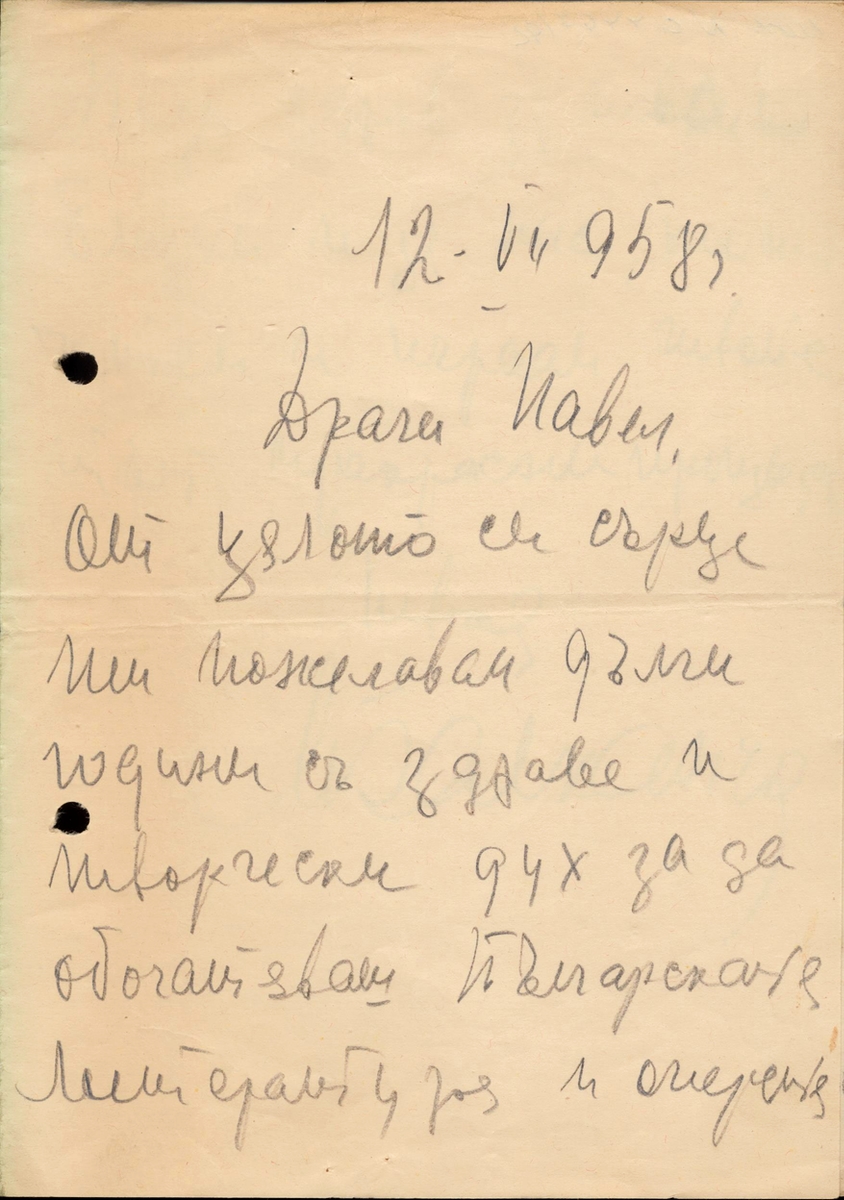 12. VII 958 г.
Драги Павел,
От цялото си сърце
ти пожелавам дълги
години съ здраве и
творчески дух за да
обогатяваш Българската
литература и